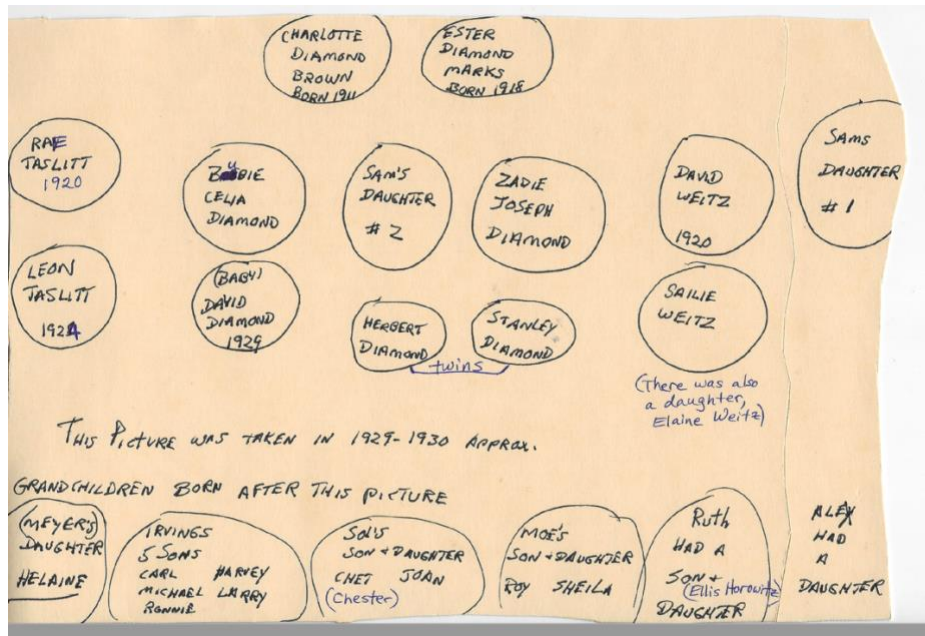 CHARLOTTE
DIAMOND
BROWN
BORN 1911
ESTER
DIAMOND
MARKS
BORN 1918
RAE
TASLITT
1920
CELIA
DIAMOND
SAM'S
DAUGHTER
# 2
ZADIE
JOSEPH
DIAMOND
DAVID
WEITZ
1920
SAMS
DAUGHTER
# 1
LEON
TASLITT
1924
(BABY)
DAVID
DIAMOND
1929
HERBERT
DIAMOND
STANLEY
DIAMOND
twins
SAILIE
WEITZ
(There was also
a daughter,
Elaine Weitz)
THIS PICTURE WAS TAKEN IN 1929-1930 APPROX.
GRANDCHILDREN BORN AFTER THIS PICTURE
(MEYER'S)
DAUGHTER
HELAINE
IRVINGS
5 SONS
CARL HARVEY
MICHAEL LARRY
RONNIE
SOL'S
SON + DAUGHTER
CHET JOAN
(Chester)
MOE'S
SON + DAUGHTER
ROY SHEILA
Ruth
HAD A
SON +
(Ellis Horowitz)
DAUGHTER
ALEX
HAD
A
DAUGHTER